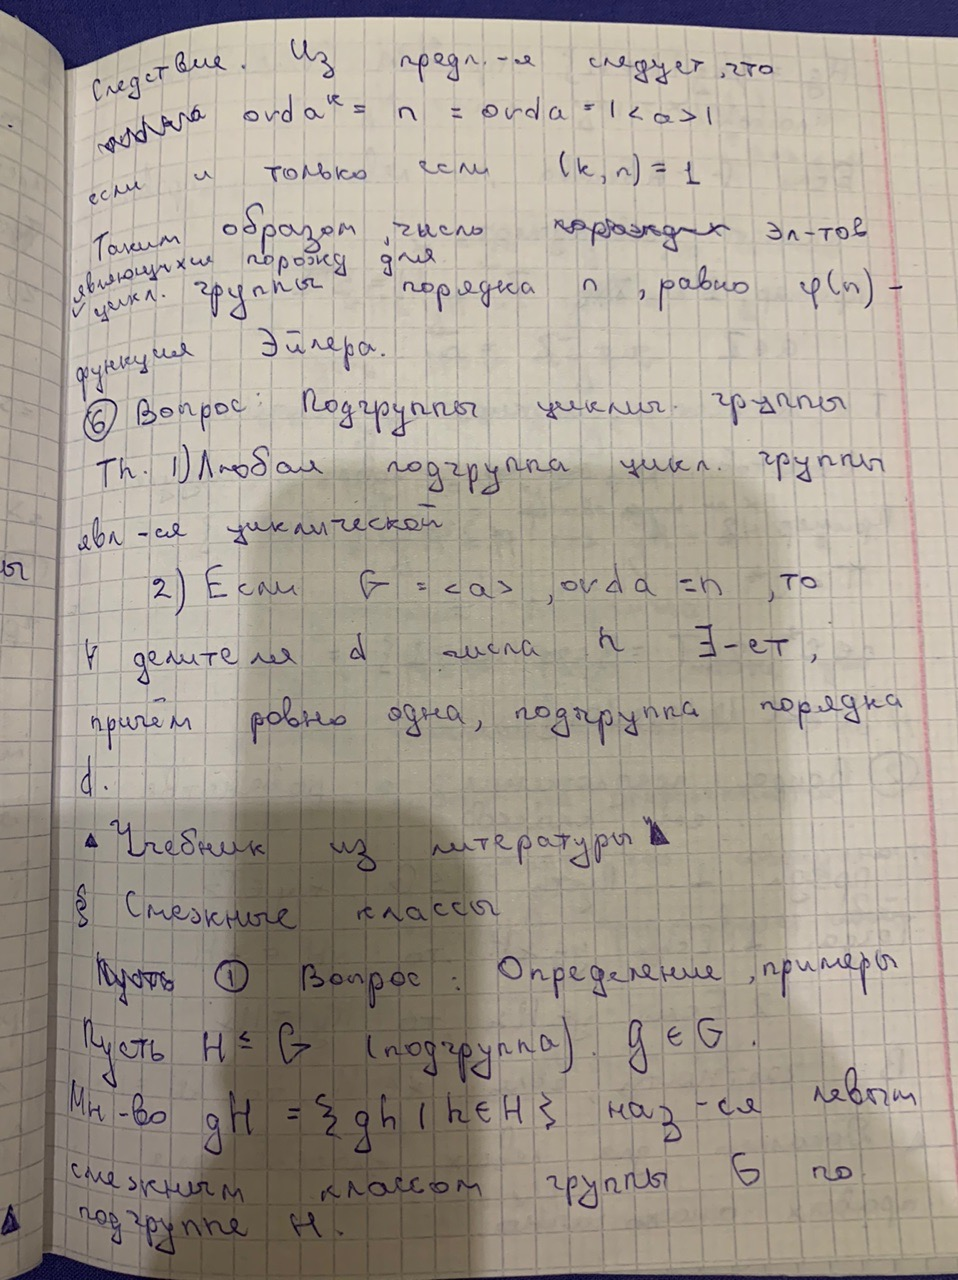 Следствие. Из предл.-я следует, что
ord aᵏ = n = ord a = |<a>|
если и только если (k, n) = 1
Таким образом, число эл-тов
являющихся порожд для
цикл. группы порядка n, равно φ(n) -
функция Эйлера.
⑥ Вопрос: Подгруппы циклич. группы
Th. 1) Любая подгруппа цикл. группы
явл-ся циклической
2) Если G = <a>, ord a = n, то
∀ делителя d числа n ∃-ет,
причём ровно одна, подгруппа порядка
d.
▲ Учебник из литературы ▲
§ Смежные классы
Пусть ① Вопрос: Определение, примеры
Пусть H ≤ G (подгруппа). g ∈ G.
Мн-во gH = {gh | h ∈ H} наз-ся левым
смежным классом группы G по
подгруппе H.
ы